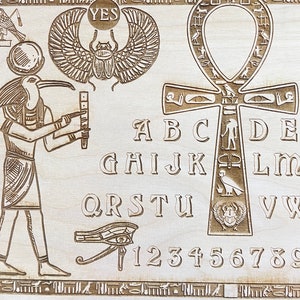 YES
A B C D E
G H I J K L M
Q R S T U V W
1 2 3 4 5 6 7 8 9